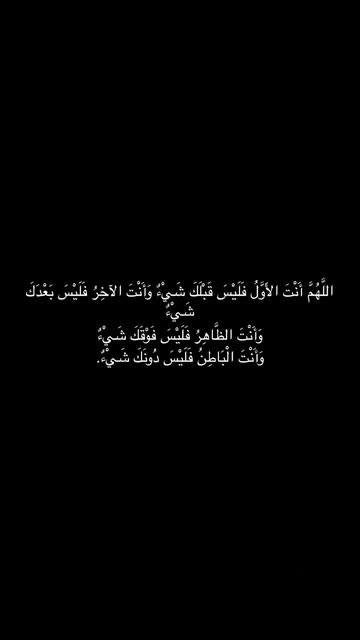 اللَّهُمَّ أَنْتَ الأَوَّلُ فَلَيْسَ قَبْلَكَ شَيْءٌ وَأَنْتَ الآخِرُ فَلَيْسَ بَعْدَكَ
شَيْءٌ
وَأَنْتَ الظَّاهِرُ فَلَيْسَ فَوْقَكَ شَيْءٌ
وَأَنْتَ الْبَاطِنُ فَلَيْسَ دُونَكَ شَيْءٌ.